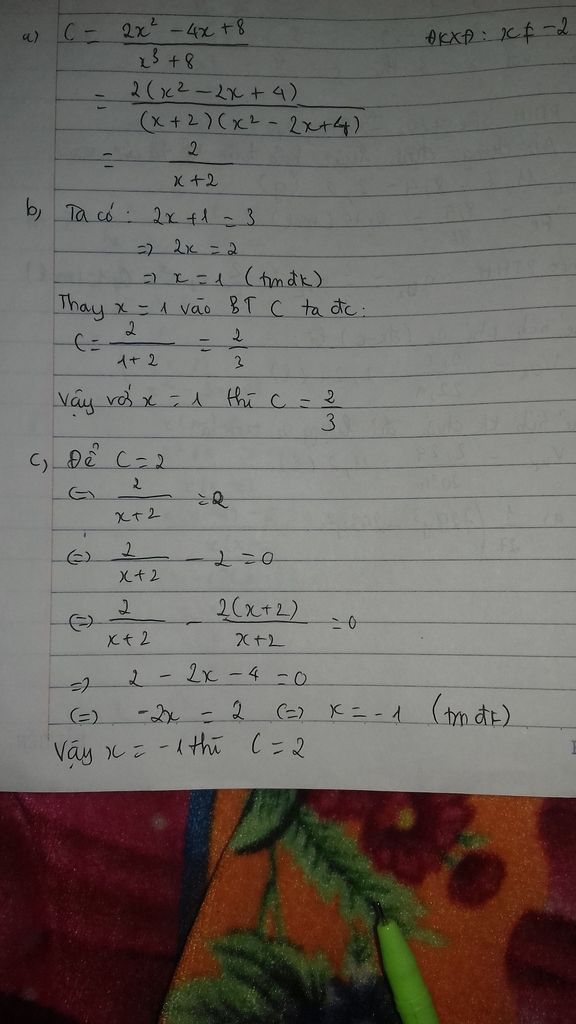 a) C = (2x² - 4x + 8)/(x³ + 8) ĐKXĐ: x ≠ -2
= 2(x² - 2x + 4)/(x+2)(x² - 2x+4)
= 2/(x+2)
b, Ta có: 2x+1 = 3
=> 2x = 2
=> x = 1 (tmđk)
Thay x = 1 vào BT C ta đc:
C = 2/(1+2) = 2/3
Vậy với x = 1 thì C = 2/3
c, Để C = 2
(=) 2/(x+2) = 2
(=) 2/(x+2) - 2 = 0
(=) 2/(x+2) - 2(x+2)/(x+2) = 0
=> 2 - 2x - 4 = 0
(=) -2x = 2 (=) x = -1 (tmđk)
Vậy x = -1 thì C = 2